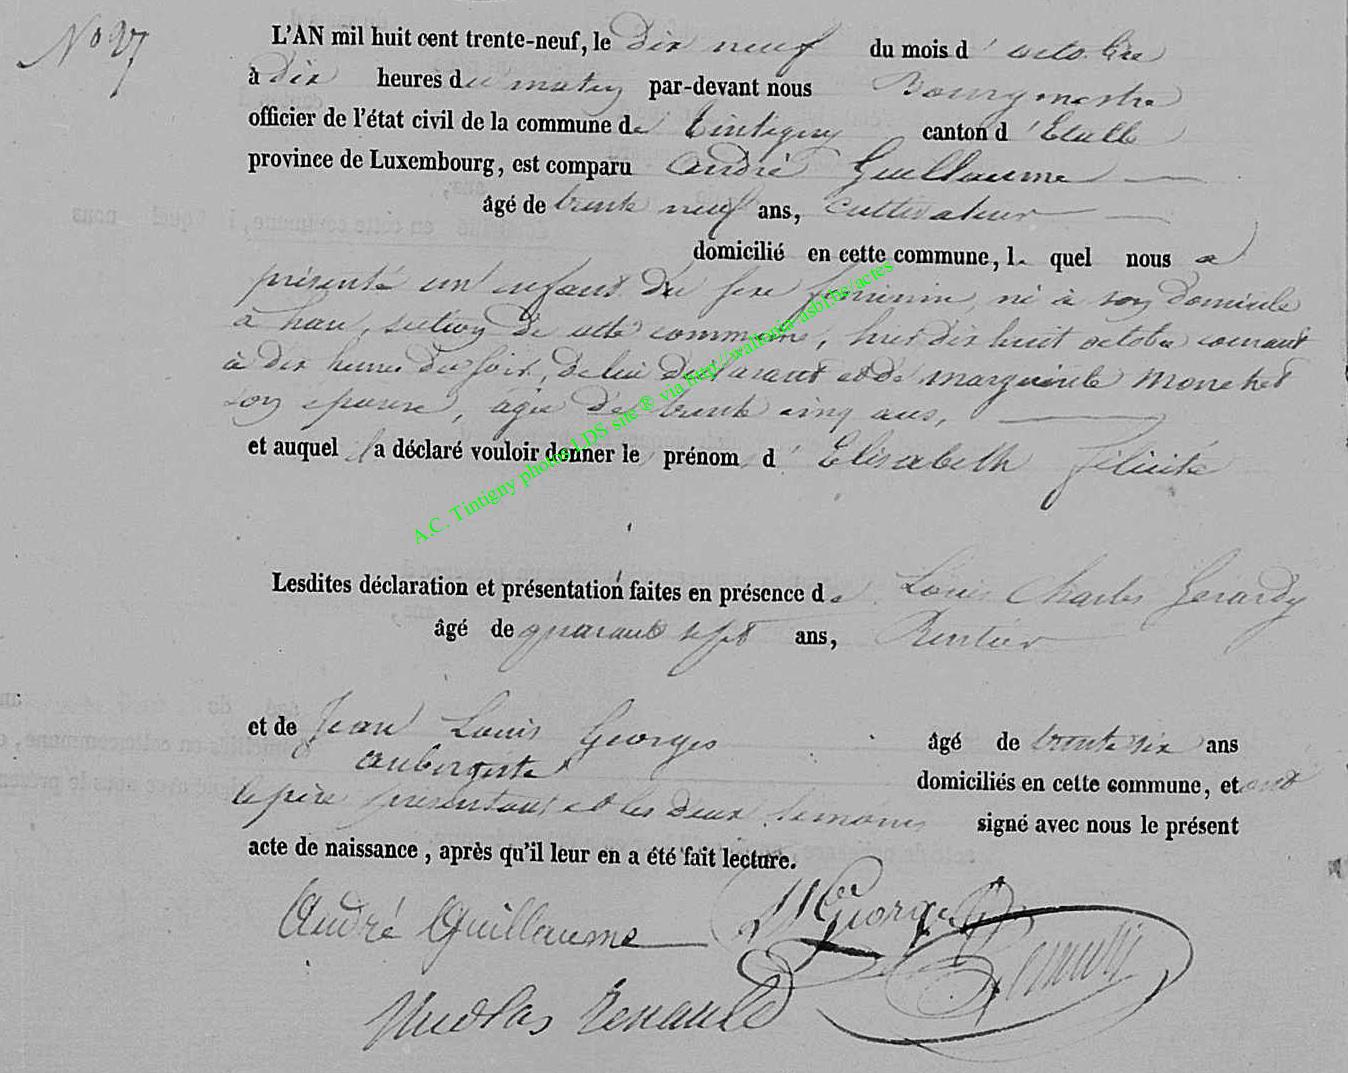 N° 27
L'AN mil huit cent trente-neuf, le dix neuf du mois d'octobre
à dix heures du matin par-devant nous Bourgmestre
officier de l'état civil de la commune de Tintigny canton d'Etalle
province de Luxembourg, est comparu André Guillaume
âgé de trente neuf ans, Cultivateur
domicilié en cette commune, le quel nous a
présenté un enfant du sexe feminin né à son domicile
à han, section de cette commune, hier dix huit octobre courant
à dix heures du soir, de lui déclarant et de Marguerite Monchet
son epouse, agée de trente cinq ans,
et auquel il a déclaré vouloir donner le prénom d'Elisabeth Félicité
Lesdites déclaration et présentation faites en présence de Louis Charles Gerardy
âgé de quarante sept ans, Rentier
et de Jean Louis Georges âgé de trente six ans
aubergiste domiciliés en cette commune, et ont
le père présentant et les deux témoins signé avec nous le présent
acte de naissance, après qu'il leur en a été fait lecture.
André Guillaume Georges
Nicolas Renauld
A.C. Tintigny photos LDS site ® via http://wallonia-asbl.be/actes